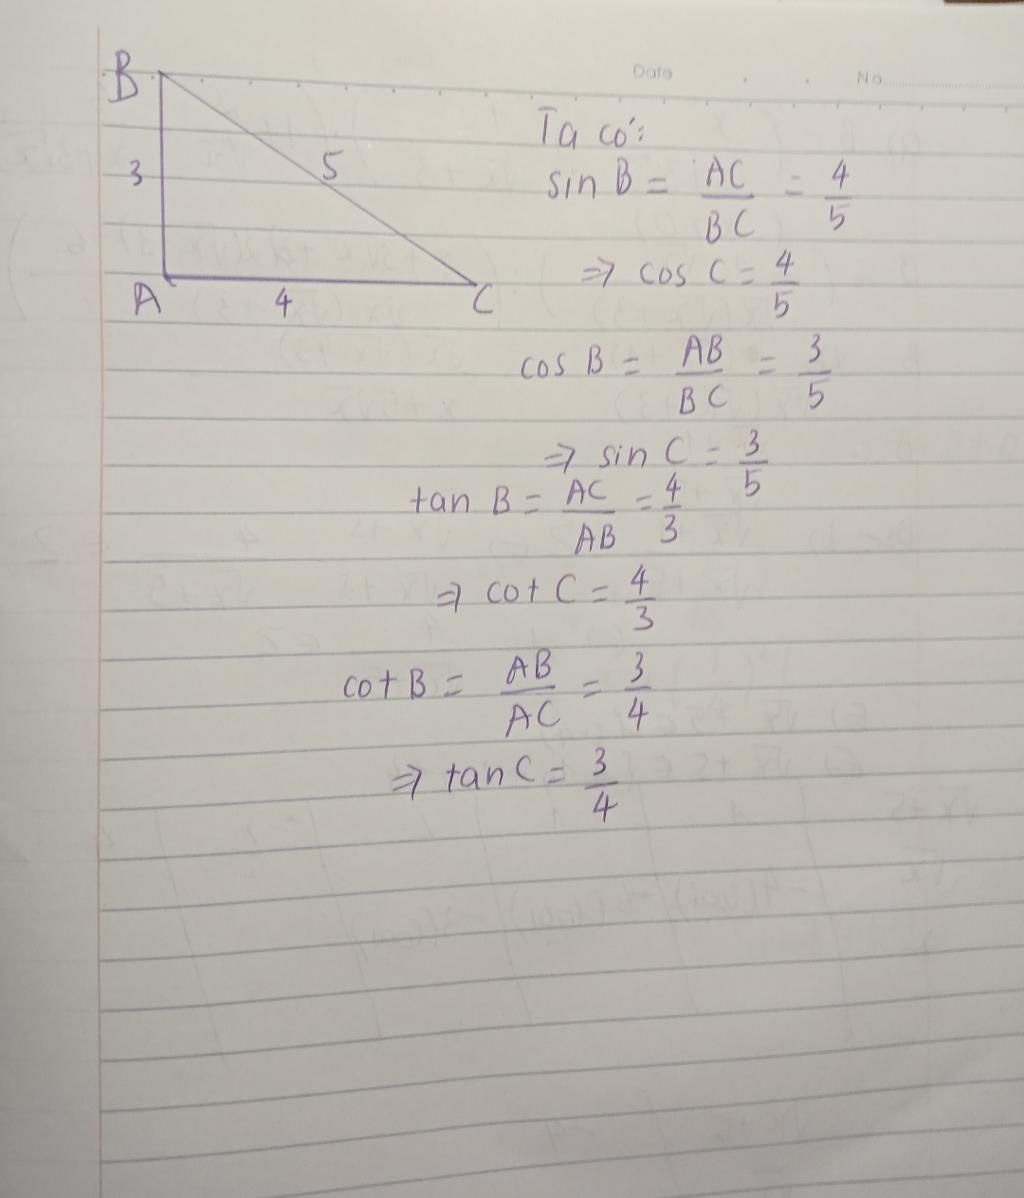 Date No
B
3
5
A 4 C
Ta có:
sin B = AC/BC = 4/5
=> cos C = 4/5
cos B = AB/BC = 3/5
=> sin C = 3/5
tan B = AC/AB = 4/3
=> cot C = 4/3
cot B = AB/AC = 3/4
=> tan C = 3/4